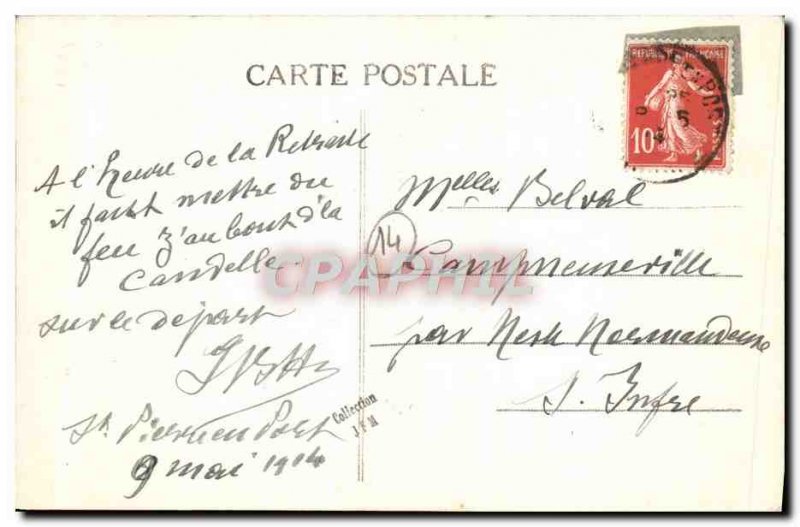 CARTE POSTALE
REPUBLIQUE FRANÇAISE
10
A l'heure de la Retraite
il faut mettre du
feu z'au bout d'la
Candelle.
sur le départ
St Pierre en Port
9 mai 1914
14
Melles Belval
Campneuseville
par Nesle Normandeuse
S. Infre
CPAPHIL
Collection
J F M